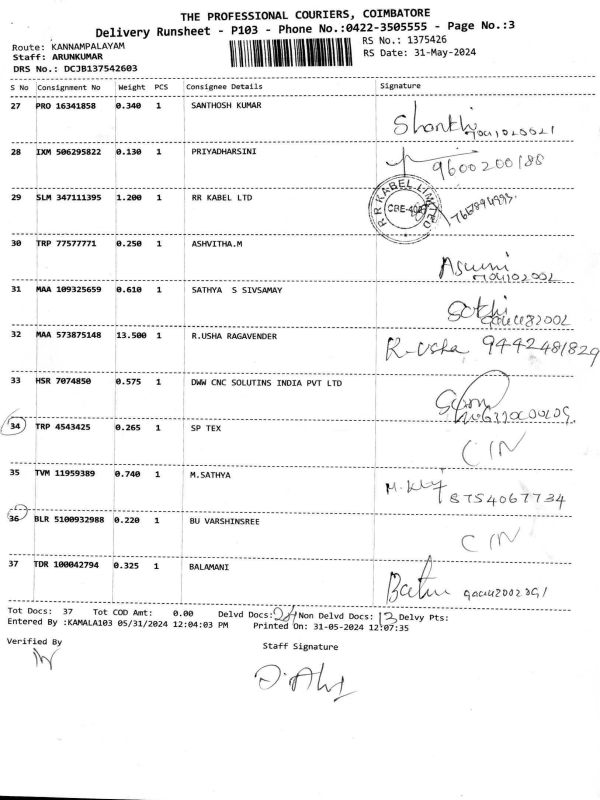 THE PROFESSIONAL COURIERS, COIMBATORE
Delivery Runsheet - P103 - Phone No.:0422-3505555 - Page No.:3
Route: KANNAMPALAYAM
RS No.: 1375426
Staff: ARUNKUMAR
RS Date: 31-May-2024
DRS No.: DCJB137542603
S No Consignment No Weight PCS Consignee Details Signature
27 PRO 16341858 0.340 1 SANTHOSH KUMAR
28 IXM 506295822 0.130 1 PRIYADHARSINI 9600200188
29 SLM 347111395 1.200 1 RR KABEL LTD R R KABEL LIMITED
30 TRP 77577771 0.250 1 ASHVITHA.M
31 MAA 109325659 0.610 1 SATHYA S SIVSAMAY
32 MAA 573875148 13.500 1 R.USHA RAGAVENDER R.Usha 9442481829
33 HSR 7074850 0.575 1 DWW CNC SOLUTINS INDIA PVT LTD
34 TRP 4543425 0.265 1 SP TEX CIN
35 TVM 11959389 0.740 1 M.SATHYA 8754067734
36 BLR 5100932988 0.220 1 BU VARSHINSREE CIN
37 TDR 100042794 0.325 1 BALAMANI
Tot Docs: 37 Tot COD Amt: 0.00 Delvd Docs: Non Delvd Docs: Delvy Pts:
Entered By :KAMALA103 05/31/2024 12:04:03 PM Printed On: 31-05-2024 12:07:35
Verified By
Staff Signature